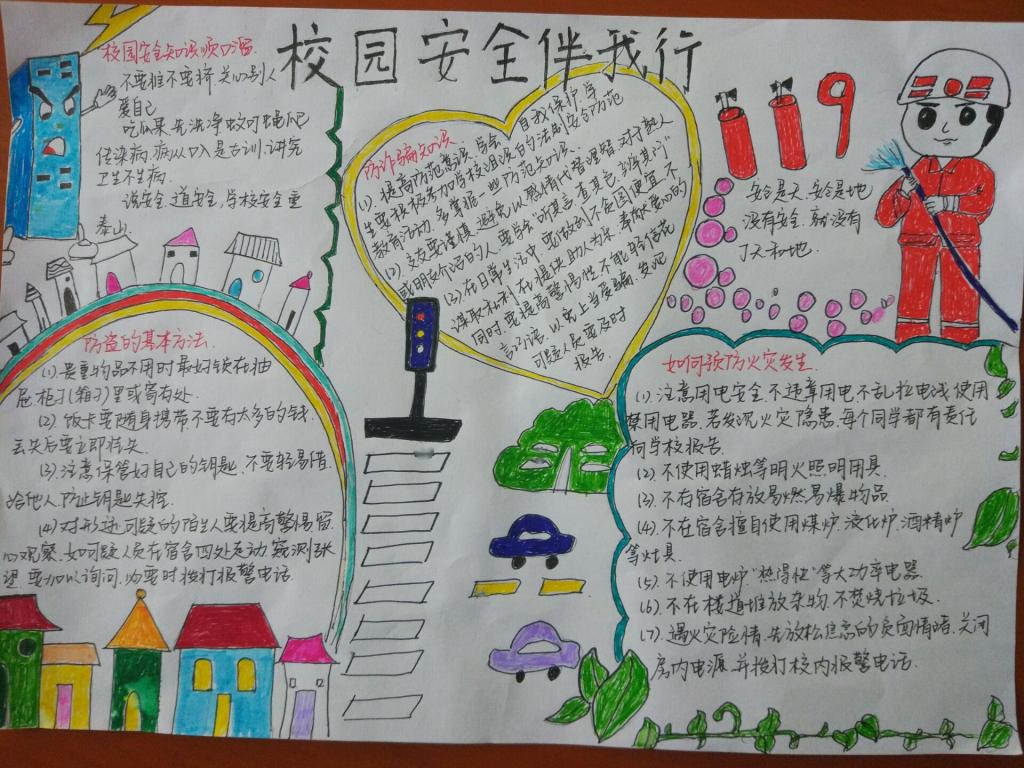 校园安全伴我行
校园安全知识顺口溜
不要推不要挤 关心别人
爱自己
吃瓜果先洗净蚊叮蝇爬
传染病.病从口入是古训.讲究
卫生不生病.
说安全.道安全,学校安全重
泰山.
防诈骗知识
(1). 提高防范意识,学会自我保护.学
生要积极参加学校组织的法制安全防范
教育活动.多掌握一些防范知识.
(2). 交友要谨慎.避免以感情代替理智.对于熟人
或朋友介绍的人要学会"听其言.查其色.辨其行"
(3).在日常生活中.要做到不贪图便宜.不
谋取私利.在提倡助人为乐.奉献爱心的
同时.要提高警惕性.不能轻信花
言巧语.以免上当受骗.发现
可疑人员要及时
报告.
119
安全是天.安全是地
没有安全.就没有
了天和地
防盗的基本方法.
(1).贵重物品不用时最好锁在抽
屉.柜子(箱子)里或寄存处.
(2)饭卡要随身携带不要有太多的钱.
丢失后要立即挂失.
(3).注意保管好自己的钥匙.不要轻易借.
给他人.防止钥匙失控.
(4)对形迹可疑的陌生人要提高警惕.留
心观察.如可疑人员在宿舍四处走动.窥测张
望.要加以询问.必要时拨打报警电话.
如何预防火灾发生
(1).注意用电安全.不违章用电.不乱拉电线.使用
禁用电器.若发现火灾隐患.每个同学都有责任
向学校报告.
(2).不使用蜡烛等明火照明用具
(3).不存宿舍存放易燃易爆物品
(4).不在宿舍擅自使用煤炉.液化炉.酒精炉
等灶具.
(5).不使用电炉"热得快"等大功率电器.
(6).不在楼道堆放杂物.不焚烧垃圾.
(7).遇火灾险情.先放松焦急的负面情绪.关闭
房内电源.并拨打校内报警电话.